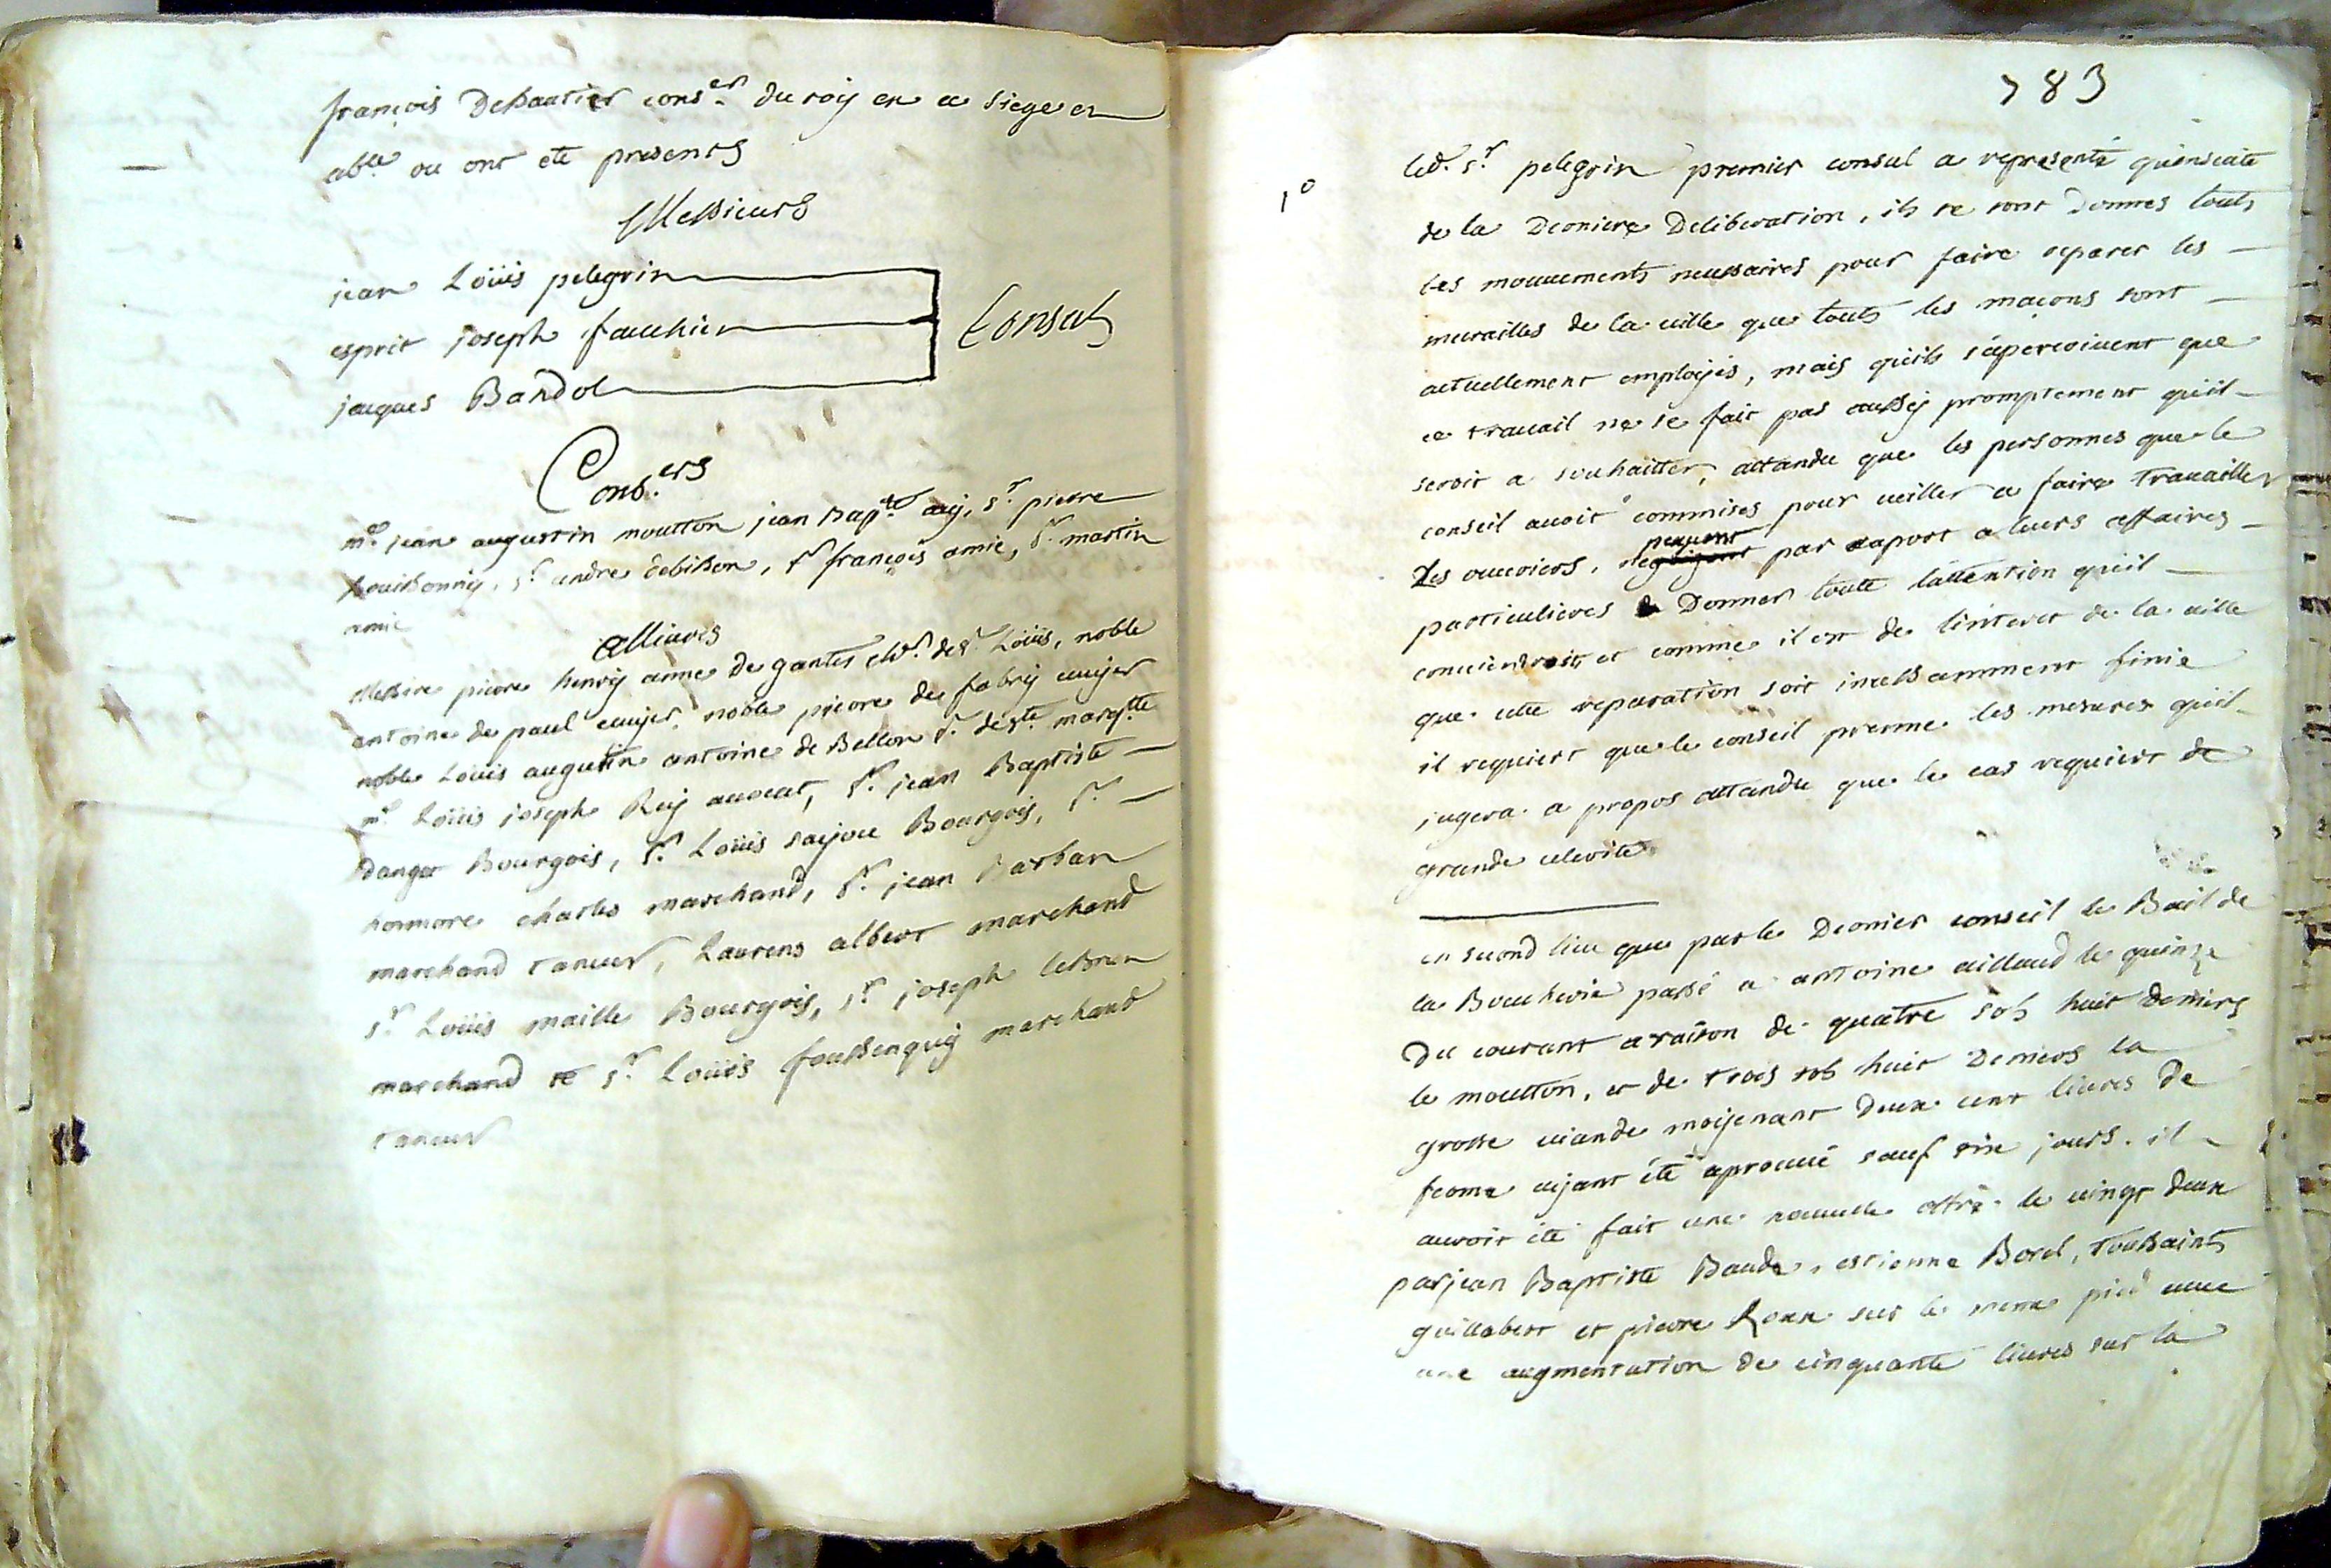 françois Debautier cons.er du roy en ce siege en
ab.ce ou ont ete presents
Messieurs
jean Loüis pelegrin
esprit joseph fauchier
jaques Bandol
Consuls
Cons.ers
m.e jean augustin moutton jean Bap.te aij, s.r pierre
bouissonnij, s.r andre debisson, s.r françois amic, s.r martin
amic
alliures
Messire pierre henrij anne de gantes ch.er de s.t Loüis, noble
antoine de paul ecuijer noble pierre de fabrij ecuijer
noble Loüis augustin antoine de Bellon s.r de s.te marg.tte
m.e Loüis joseph Reij auocat, s.r jean Baptiste
Bourgois, s.r Loüis saijou Bourgois, s.r
honnore charles marchand, s.r jean barban
marchand taneur, Laurens albert marchand
s.r Loüis maille Bourgois, s.r joseph lebrun
marchand et s.r Loüis foussenquij marchand
taneur
783
1°
led. s.r pelegrin premier consul a representé qu'ensuite
de la Derniere Deliberation, ils se sont Donnes touts
les mouuements necessaires pour faire reparer les
murailles de la uille que touts les maçons sont
actuellement emploijés, mais qu'ils s'aperçoiuent que
ce trauail ne se fait pas aussij promptement qu'il
seroit a souhaitter, attandu que les personnes que le
conseil auoit commises pour ueiller a faire trauailler
peuuent
Les ouuriers, ne par raport a leurs affaires
particulieres Donner toutte l'attention qu'il
conuiendroit, et comme il est de l'interet de la uille
que cette reparation soit incessamment finie
il requiert que le conseil prenne les mesures qu'il
jugera a propos attandu que le cas requiert de
grande celerité
en second lieu que par le Dernier conseil le Bail de
la Boucherie passé a antoine aillaud le quinze
du courant a raison de quatre sols huit deniers
le moutton, et de trois sols huit Deniers la
grosse uiande moijenant Deux cent liures de
ferme aijant été aprouué sauf six jours. il
auroit été fait une nouuelle offre le uingt deux
par jean Baptiste Baude, estienne Borel, toussaints
guillabert et pierre Roux sur le meme pied auec
une augmentation de cinquante liures sur la